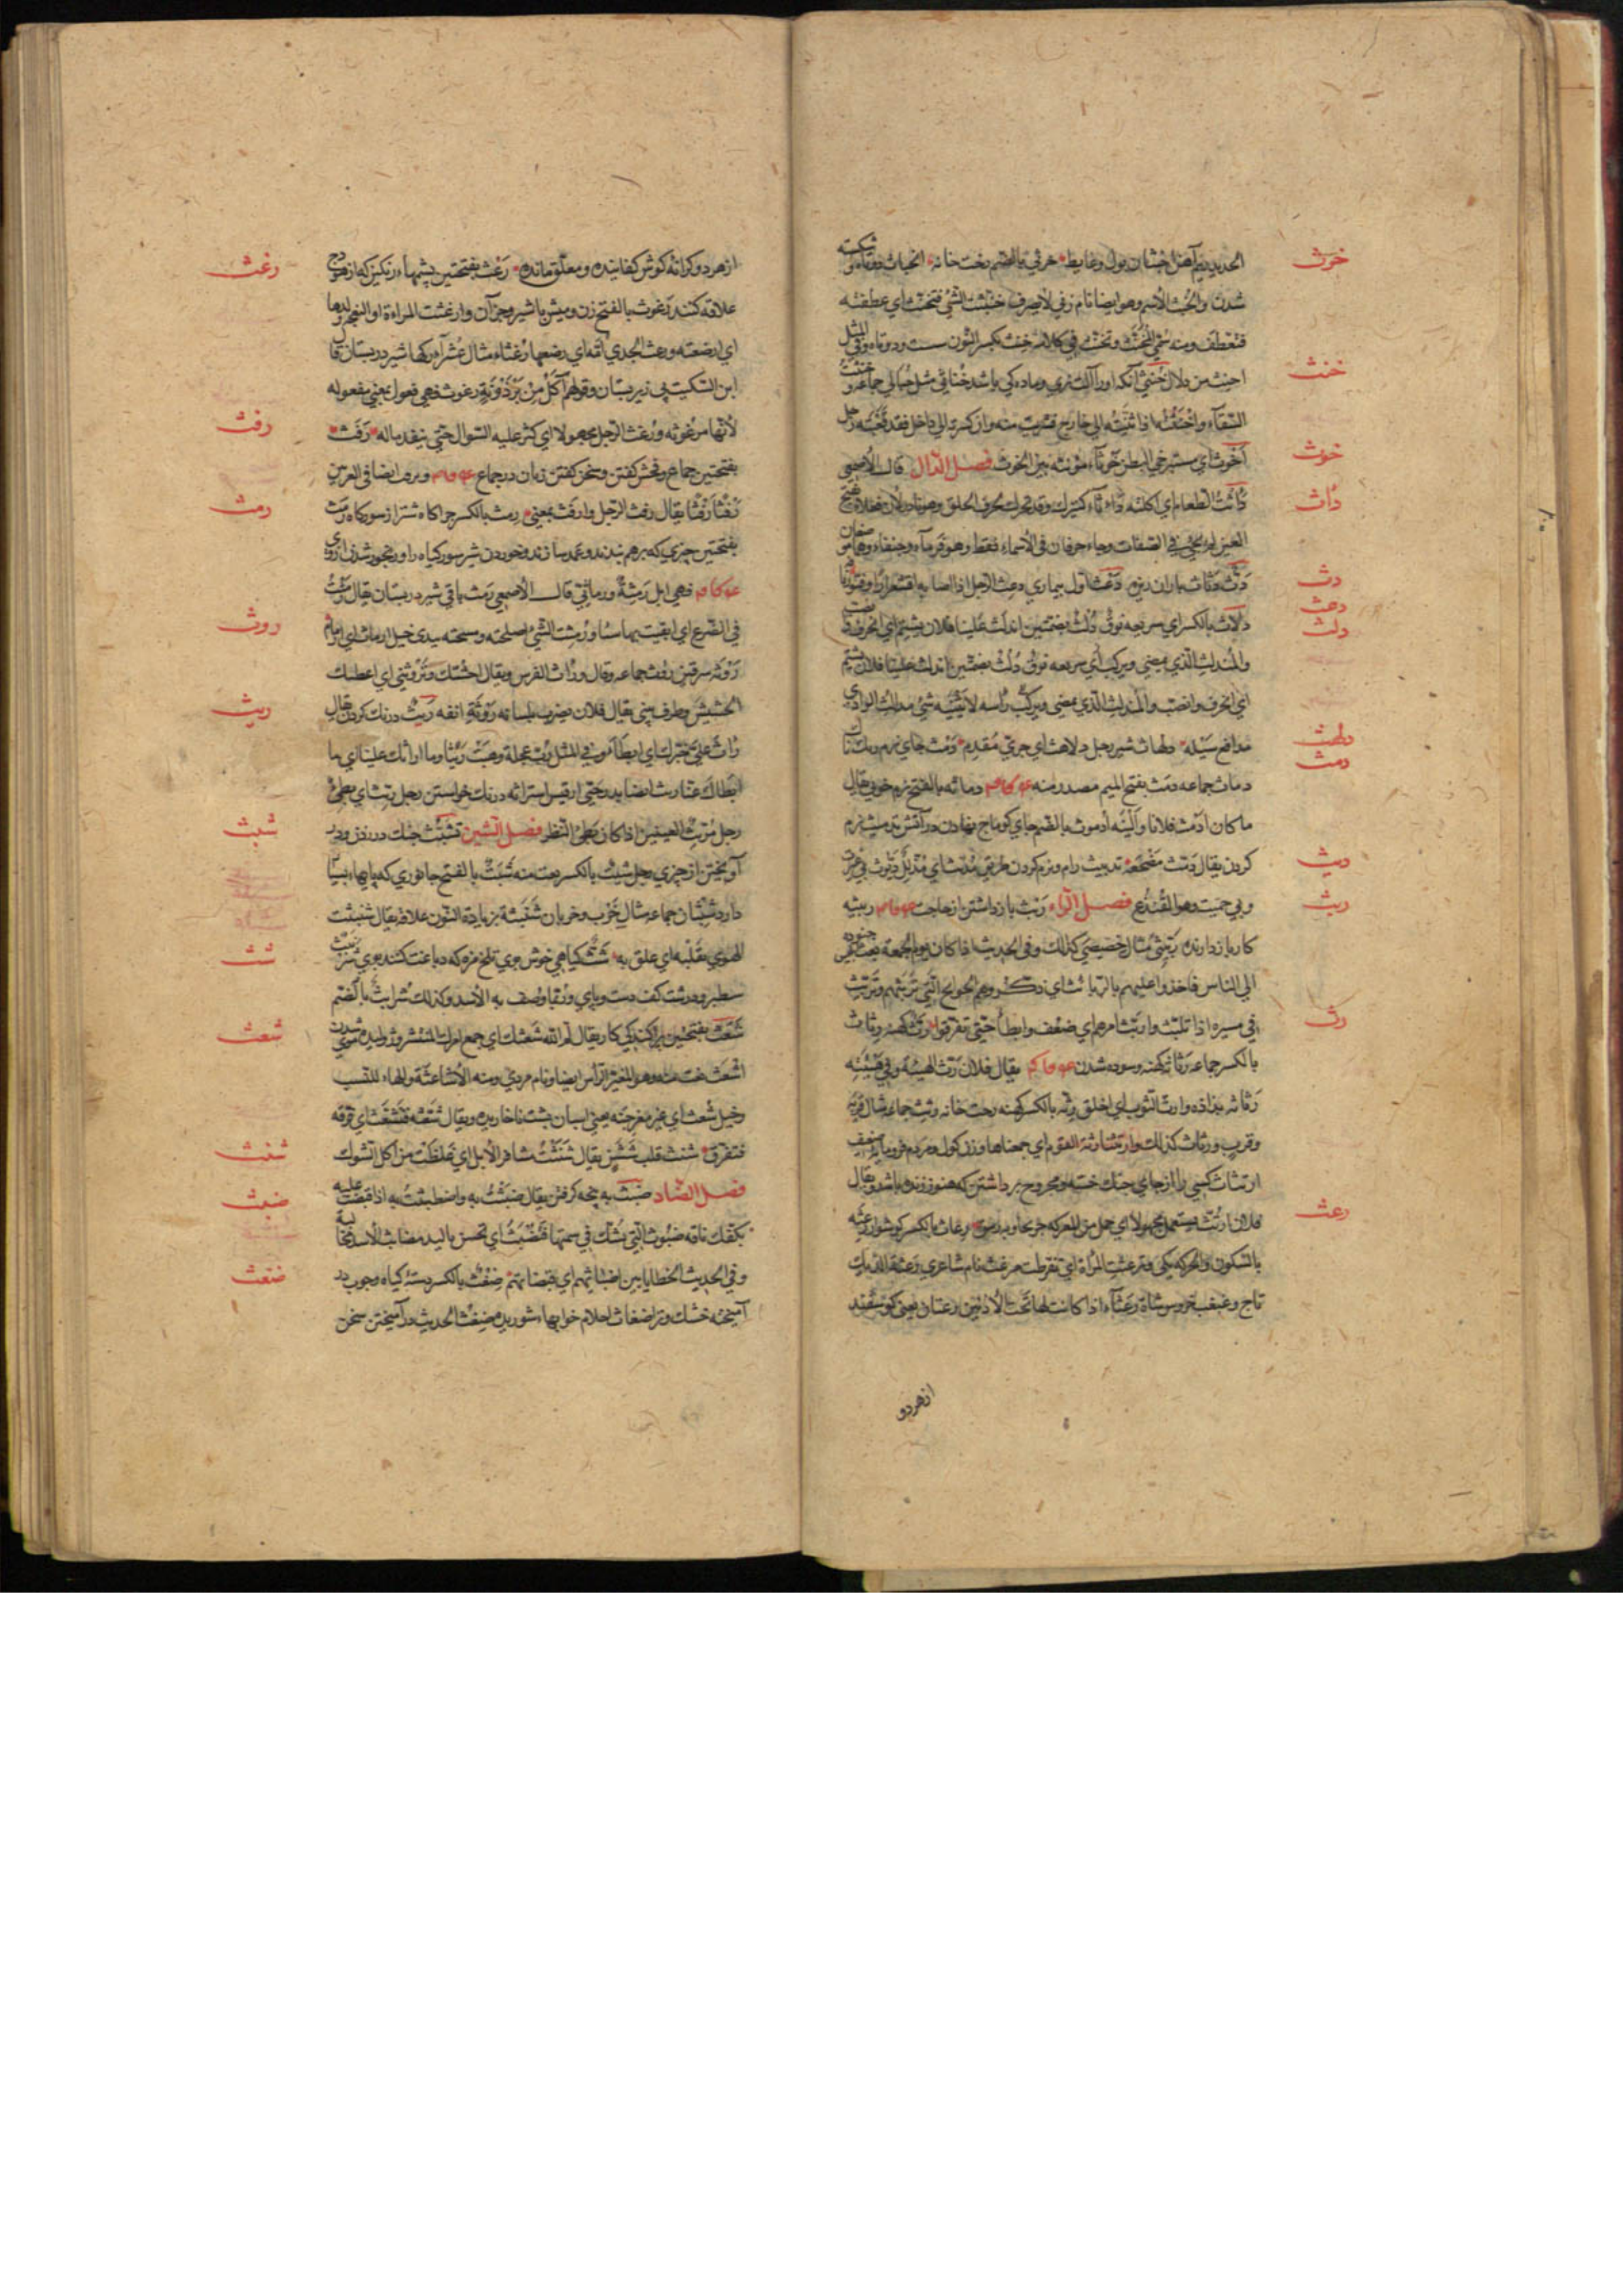 خرث
الحديد يطهر اخبثان بول وغايط خرثي بالضم رخت خانه انخناث دوتاه و شكسته
شدن والخنث الاسم وهو ايضا نام زني لا يصرف خنثت الشئ فتخنث اي عطفته
فتعطف ومنه سمي المخنث وتخنث في كلامه خنث بكسر النون سست ودوتاه وفي المثل
خنث
اخنث من دلال خنثي آنكه او را آلت نري وماده كي باشد خناثي مثل حبالي جماعه و خنثت
السقاء واختنثته اذا ثنيته الي خارج فشربت منه وان كسرته الي داخل فقد قبعته رجل
خوث
اخوث اي مسترخي البطن خوثاء مؤنثه بين الخوث فصل الدال قال الاصمعي
دأث
دأثت الطعام اي اكلته دأثاء كنيزك وقد تحرك لحرف الحلق وهو نادر لان فعلاء بفتح
العين لم يجئ في الصفات وجاء حرفان في الاسماء فقط وهو فرماء وجنفاء وهما موضعان
دث
دث دثاث باران ريزه دعث اول بيماري ودعث الرجل اذا اصابه اقشعرار وفتور
دعث
دلث
دلاث بالكسر اي سريعه نوق دلث بضمتين اندلث علينا فلان يشتم اي انخرف
والمندلث الذي يمضي ويركب اي سريعه نوق دلث بضمتين اندلث علينا فلان يشتم
اي انخرف وانصب والمندلث الذي يمضي ويركب رأسه لا يثنيه شئ مدالث الوادي
دلهث
مدافع سيله دلهاث شير رجل دلاهث اي جري مقدم دمث جاي نرم وريك ناك
دمث
دماث جماعه دمث بفتح الميم مصدر منه دماثه بالفتح نرم خوئي يقال
ما كان ادمث فلانا والينه ادموث بالضم جاي كوماج نهادن در آتش تدميث نرم
ديث
كردن يقال دمث مضجعه تدييث رام ونرم كردن طريق مديث اي مذلل ديوث بي غيرت
ربث
وبي حميت وهو القنذع فصل الراء ربث باز داشتن از حاجت ربيثه
كار باز دارنده ربيثي مثال خصيصي كذلك وفي الحديث اذا كان يوم الجمعة بعث ابليس جنوده
الي الناس فاخذوا عليهم بالربائث اي ذكروهم الحوائج التي تربثهم وتربث
رث
في سيره اذا تلبث واربث امرهم اي ضعف وابطأ حتي تفرقوا رث كهنه رثاث
بالكسر جماعه رثاثه كهنه وسوده شدن يقال فلان رث الهيئة وفي هيئته
رثاثه بذاذه وارث الثوب اي اخلق رثه بالكسر كهنه رخت خانه رثث جماعه مثال قربه
وقرب ورثاث كذلك وارتثنا رثة القوم اي جمعناها وزن كول ومردم فرومايه ضعيف
ارتثاث كسي را از جاي جنك خسته ومجروح برداشتن كه هنوز زنده باشد ويقال
رعث
فلان ارتث يستعمل مجهولا اي حمل من المعركه جريحا وبه رمق رعاث بالكسر كوشوار رعثه
بالسكون والحركه يكي وترعثت المرأة اي تقرطت مرعث نام شاعري رعثة الديك
تاج وغبغب خروس شاة رعثاء اذا كانت لها تحت الاذنين رعثان يعني كوسفند
از هر دو
رغث
از هر دو كرانه كوش كفانيده ومعلق مانده رعث بفتحتين پشمهاء رنكين كه از هودج
علاقه كنند رغوث بالفتح زن وميش با شير وجز آن وارغثت المراة او النعجة ولدها
اي ارضعته ورغث الجدي امه اي رضعها رغثاء مثال عشراء ركها شير در پستان قال
ابن السكيت پي زير پستان وقولهم آكل من برذونة رغوث وهي فعول بمعني مفعوله
رفث
لانها مرغوثه ورغث الرجل مجهولا اي كثر عليه السوال حتي ينفد ماله رفث
بفتحتين جماع وفحش كفتن وسخن كفتن زنان در جماع
رمث
رفثا رفثا يقال رفث الرجل وارفث بمعني رمث بالكسر چراكاه شتر از شوركياه رمث
بفتحتين چيزي كه برهم بندند وعمد سازند وخوردن شتر شوركياه را ورنجور شدن از وي
فهي ابل رمثة ورماثي قال الاصمعي رمث باقي شير در پستان يقال رمثت
روث
في الضرع اي ابقيت بها شيئا ورمثت الشئ اصلحته ومسحته بيدي حبل ارماث اي ارمام
روثه سركين روث جماعه يقال وراث الفرس ويقال احشك وتروثني اي اعطيك
ريث
الحشيش وطرف بيني يقال فلان يضرب بلسانه روثة انفه ريث درنك كردن يقال
راث علي خبرك اي ابطأ وفي المثل رب عجلة وهبت ريثا وما اراثك علينا اي ما
ابطاك عنا ريث ايضا پدر حيي از قيس استراثه درنك خواستن رجل ريث اي بطئ
شبث
رجل مريث العينين اذا كان بطئ النظر فصل الشين تشبث چنك در زدن ودر
آويختن از چيزي رجل شبث بالكسر نعت منه شبث بالفتح جانوري كه پايهاء بسيار
دارد شبثان جماعه مثال خرب وخربان شنبثة بزيادة النون علاقه يقال شنبثت
شث
الهوي بقلبه اي علق به شث كياهي خوش بوي تلخ مزه كه دباغت كنند بوي شرنبث
سطبر ودرشت كف دست وپاي وربما وصف به الاسد وكذلك شرابث بالضم
شعث
شعث بفتحتين پراكندكي كار يقال لم الله شعثك اي جمع امرك المنتشر وژوليده شدن موي
اشعث نعت منه وهو المغبر الرأس ايضا ونام مردي ومنه الاشاعثة والهاء للنسب
وخيل شعث اي غير مفرجنه يعني اسبان پشت ناخاريده ويقال شعثه فتشعث اي فرقه
شنث
فتفرق شنث قلب شثن يقال شنثت مشافر الابل اي غلظت من اكل الشوك
ضبث
فصل الضاد ضبث به پنجه كرفتن يقال ضبثت به واضطبثت به اذا قبضت عليه
بكفك ناقه ضبوث التي يشك في سمنها فتضبث اي تحس باليد مضابث الاسد مخالبه
ضغث
وفي الحديث الخطايا بين اضباثهم اي قبضاتهم ضغث بالكسر دسته كياه وچوب در
آميخته خشك وتر اضغاث احلام خوابهاء شوريده ضغث الحديث در آميختن سخن